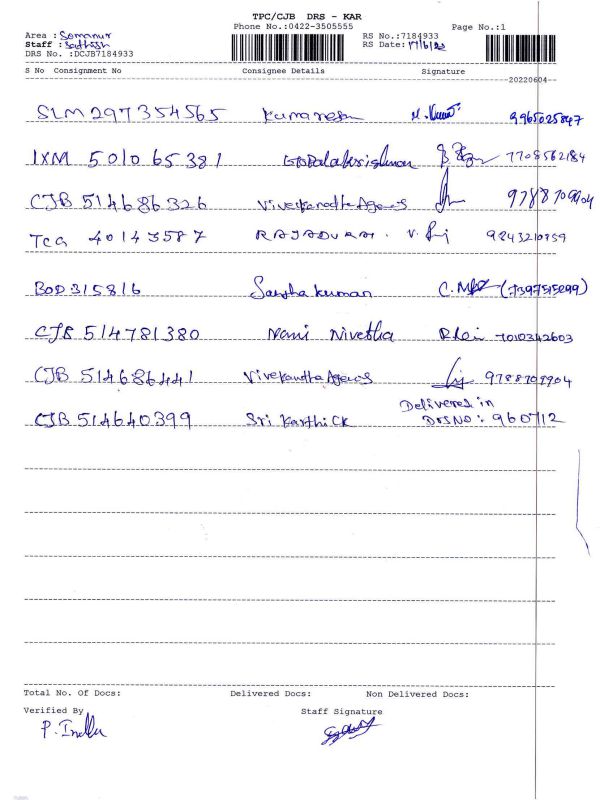 TPC/CJB DRS - KAR
Phone No.:0422-3505555 Page No.:1
Area : Somanur RS No.:7184933
Staff : Sathish RS Date: 17/6/23
DRS No. :DCJB7184933
S No Consignment No Consignee Details Signature
20220604
SLM 297354565 Kumaresn 9965025847
IXM 501065381 Gopalakrishnan 7708562184
CJB 514686326 Vivekanadha Agencis 9788709904
TCG 40143587 RAJADURAI. V. 9243210959
BOD 315816 Sasthakumar (7397515099)
CJB 514781380 Nami Nivetha 7010342603
CJB 514686441 Vivekantha Agencs 9788709904
CJB 514640399 Sri Karthick Delivered in
DRS NO: 960712
Total No. Of Docs: Delivered Docs: Non Delivered Docs:
Verified By Staff Signature
P. Indhu